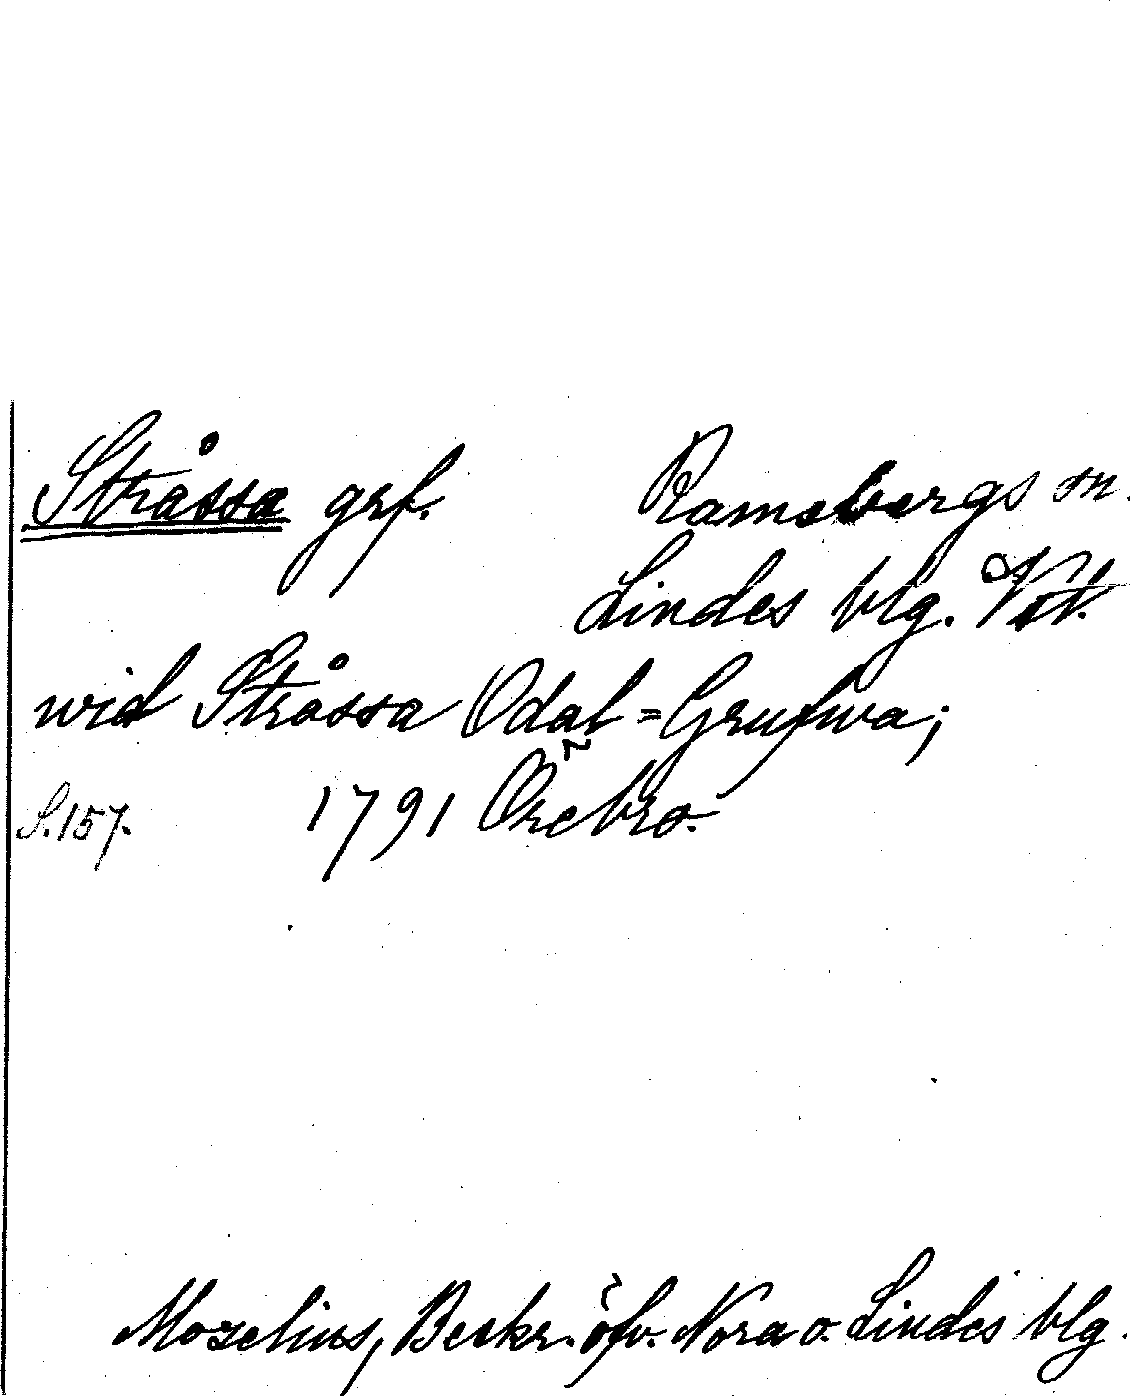 Stråssa grf. Ramsbergs sn.
Lindes blg. Vstl.
wid Stråssa Odal=Grufwa;
S.157. 1791 Örebro.
Mozelius, Beskr. öfv. Nora o. Lindes blg.